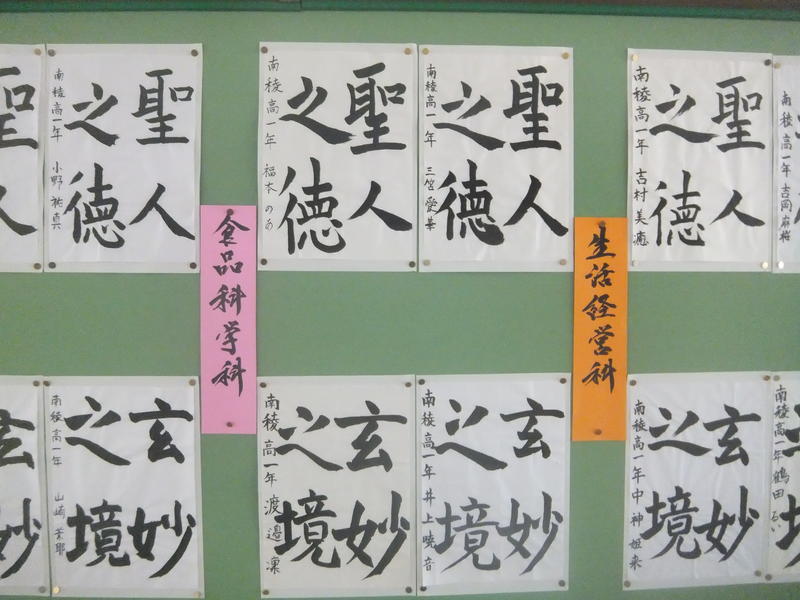 聖人
聖人
之徳
南稜高一年 小野
聖人
之徳
南稜高一年 福本のあ
聖人
之徳
南稜高一年 三宮愛華
聖人
之徳
南稜高一年 吉村美
南稜高一年 吉岡麻
食品科学科
生活経営科
玄妙
玄妙
之境
南稜高一年 山崎
玄妙
之境
南稜高一年 渡邉凜
玄妙
之境
南稜高一年 井上暁音
玄妙
之境
南稜高一年 中神
南稜高一年 鶴田るい